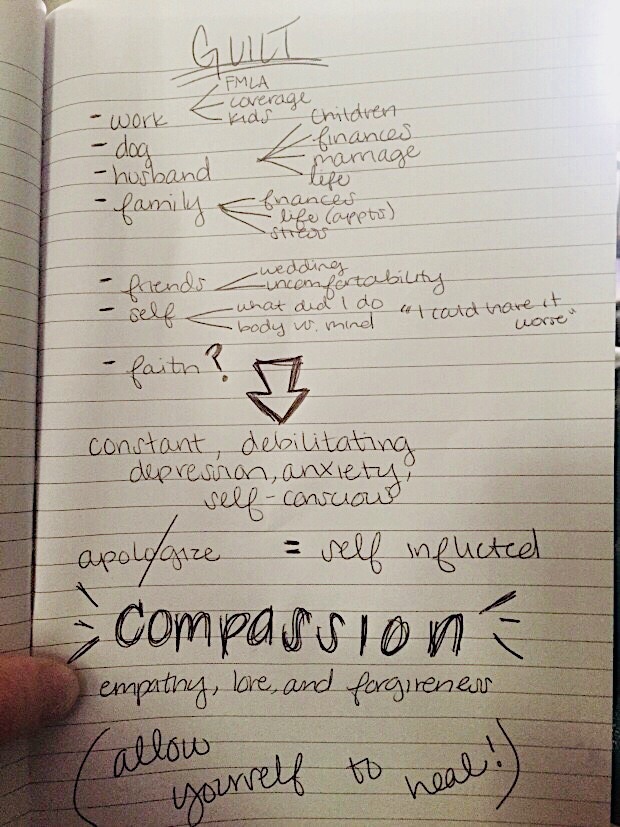 GUILT
FMLA
- work coverage
kids
- dog
children
finances
- husband marriage
life
- family finances
life (appts)
stress
- friends wedding
uncomfortability
- self what did I do
body vs. mind "I could have it
worse"
- faith?
constant, debilitating
depression, anxiety,
self-conscious
apologize = self inflicted
compassion
empathy, love, and forgiveness
(allow
yourself to heal!)